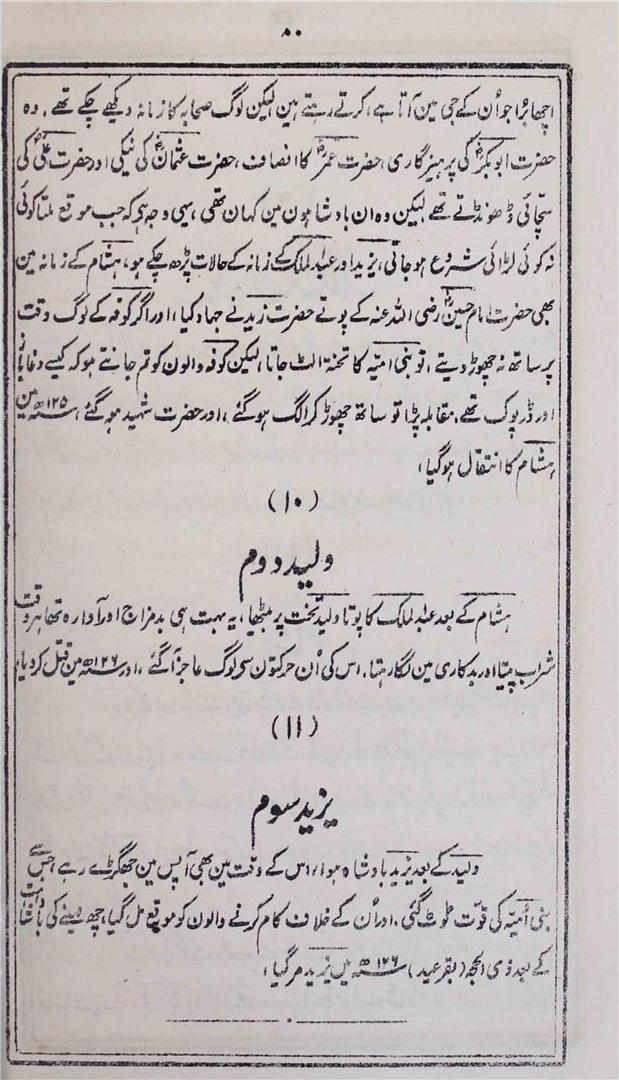 ۸۰
اچھا بُرا جو اُن کے جی مین آتا ہے، کرتے رہتے ہین لیکن لوگ صحابہ کا زمانہ دیکھے چکے تھے. وہ
حضرت ابوبکرؓ کی پرہیزگاری، حضرت عمرؓ کا انصاف، حضرت عثمانؓ کی نیکی اور حضرت علیؓ کی
سچائی ڈھونڈتے تھے لیکن وہ ان بادشاہون مین کہان تھی، یہی وجہ ہی کہ جب موقع ملتا کوئی
نہ کوئی لڑائی شروع ہو جاتی، یزید اور عبدالملک کے زمانہ کے حالات پڑھ چکے ہو، ہشام کے زمانہ مین
بھی حضرت امام حسینؓ رضی اللہ عنہ کے پوتے حضرت زید نے جہاد کیا، اور اگر کوفہ کے لوگ وقت
پر ساتھ نہ چھوڑ دیتے، تو بنی امیّہ کا تختہ الٹ جاتا، لیکن کوفہ والون کو تم جانتے ہو کہ کیسے دغاباز
اور ڈرپوک تھے. مقابلہ پڑا تو ساتھ چھوڑ کر الگ ہو گئے، اور حضرت شہید ہو گئے، ۱۲۵ھ مین
ہشام کا انتقال ہو گیا،
(۱۰)
ولید دوم
ہشام کے بعد عبدالملک کا پوتا ولید تخت پر بیٹھا، یہ بہت ہی بدمزاج اور آوارہ تھا ہر وقت
شراب پیتا اور بدکاری مین لگا رہتا. اس کی اُن حرکتون سی لوگ عاجز آ گئے، اور ۱۲۶ھ مین قتل کر دیا،
(۱۱)
یزید سوم
ولید کے بعد یزید بادشاہ ہوا، اس کے وقت مین بھی آپس مین جھگڑے رہے جس سے
بنی اُمیّہ کی قوت ٹوٹ گئی. اور اُن کے خلاف کام کرنے والون کو موقع مل گیا، چھ مہینے کی بادشاہت
کے بعد ذی الحجہ (بقرعید) ۱۲۶ھ مین یزید مر گیا،